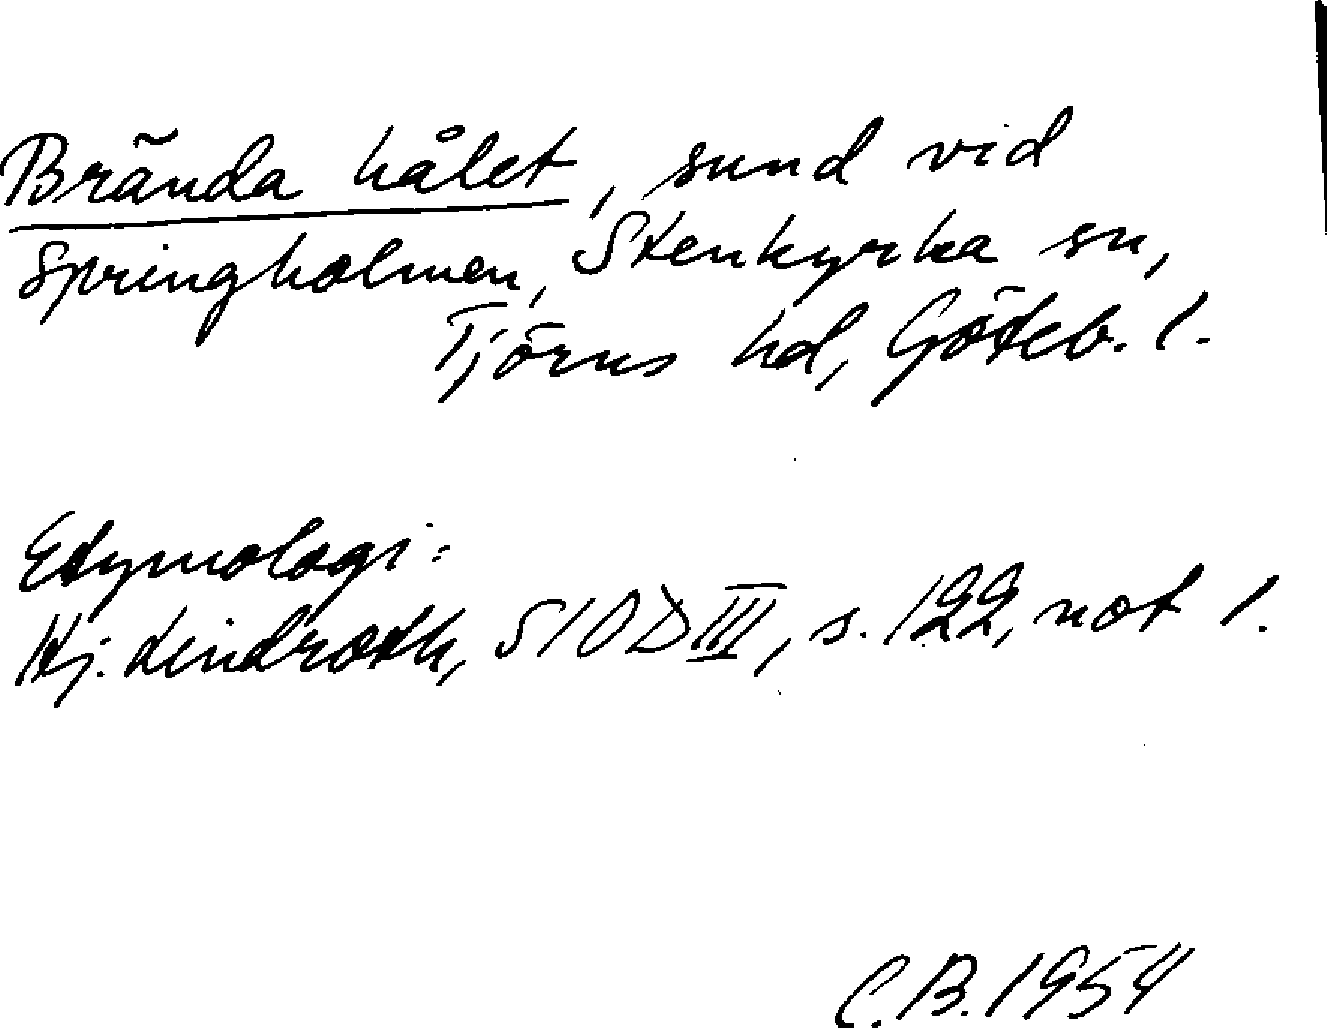 Brända hålet, sund vid
Springholmen, Stenkyrka sn,
Tjörns hd, Göteb. l.
Etymologi:
Hj. Lindroth, SIOD III, s. 122, not 1.
C.B. 1954